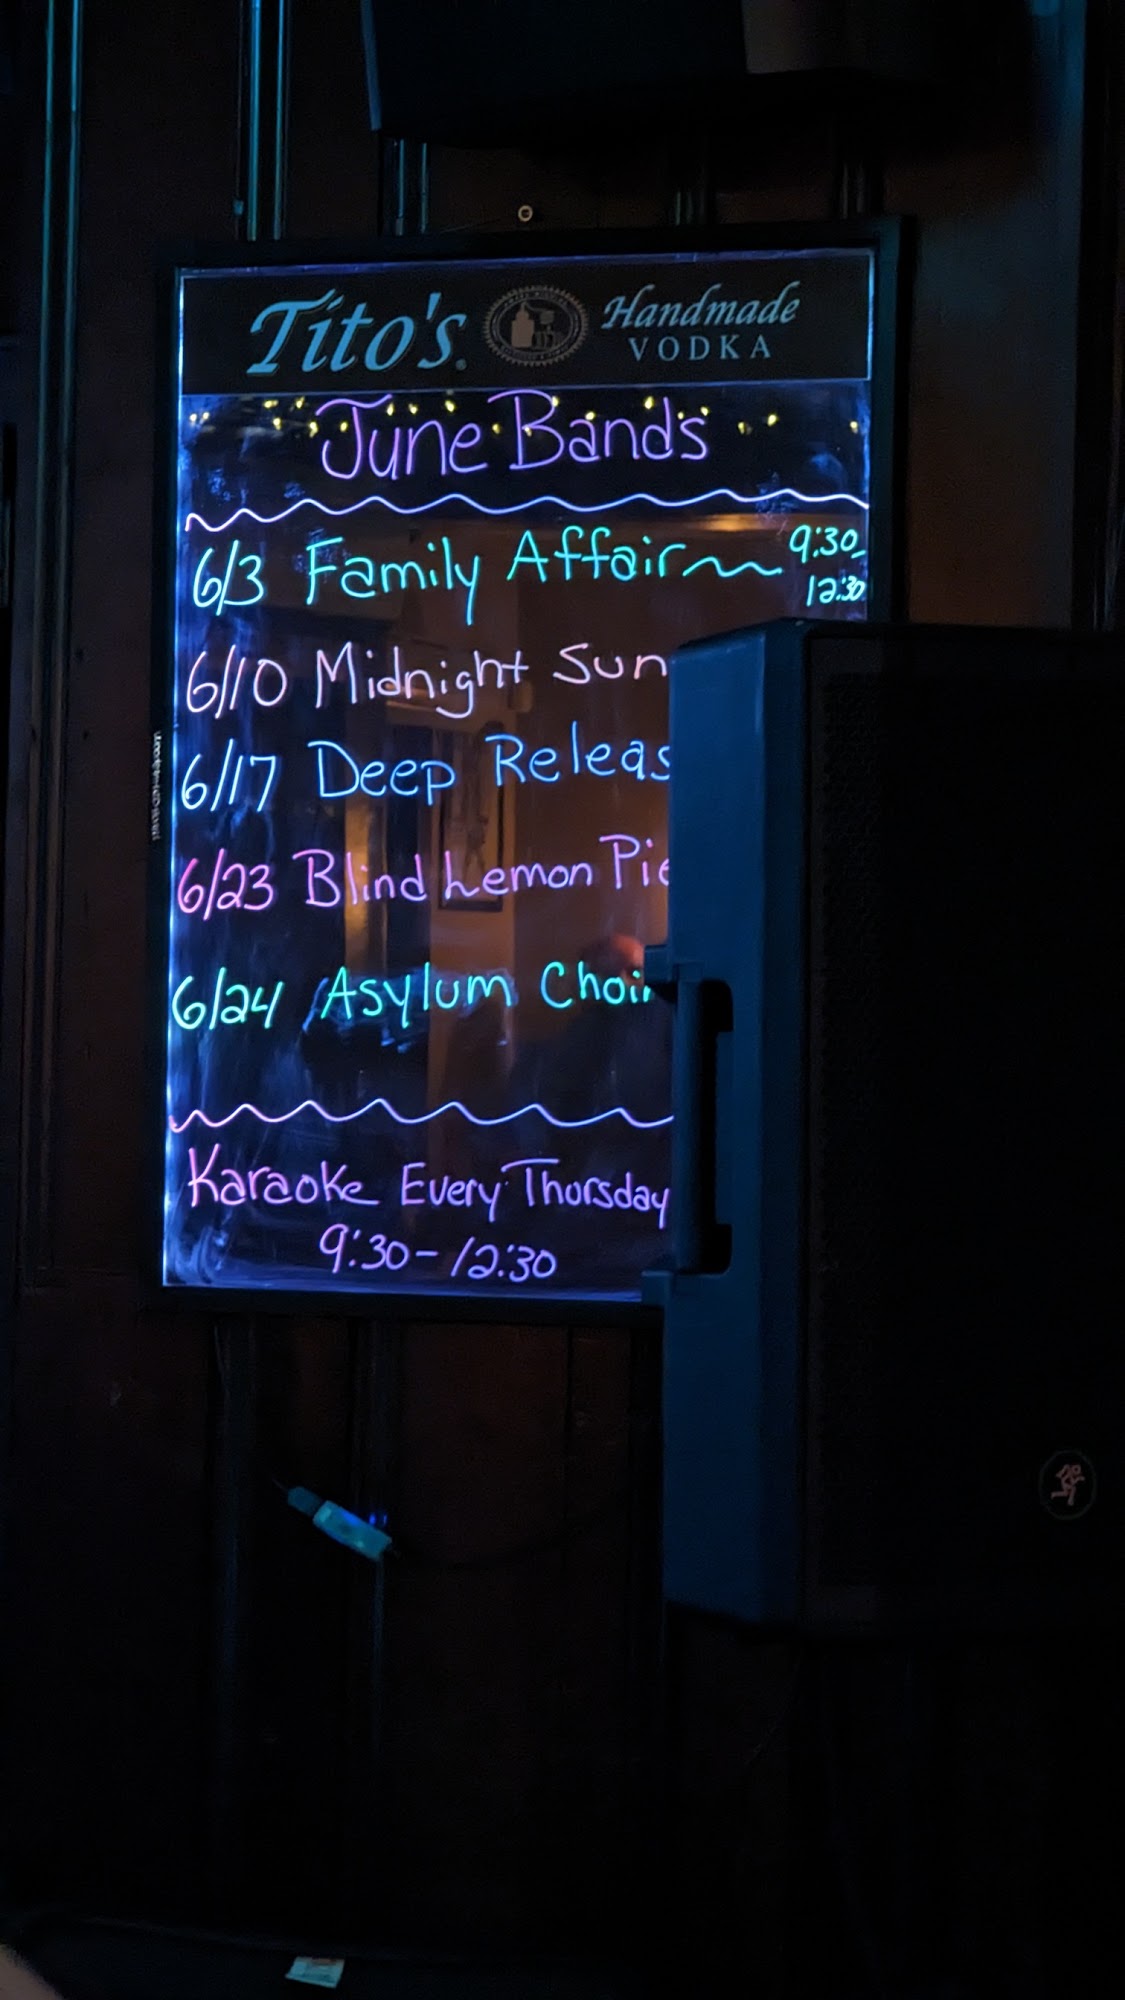 Tito's. Handmade
VODKA
June Bands
6/3 Family Affair 9:30-
12:30
6/10 Midnight Sun
6/17 Deep Releas
6/23 Blind Lemon Pie
6/24 Asylum Choir
Karaoke Every Thursday
9:30-12:30